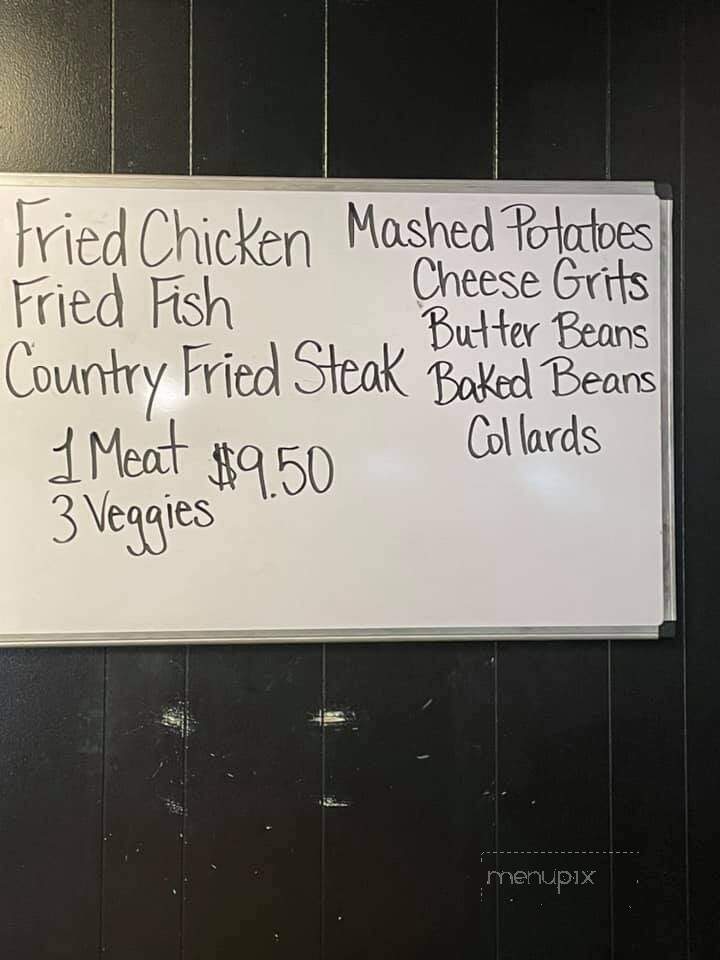 Fried Chicken
Fried Fish
Country Fried Steak
1 Meat $9.50
3 Veggies
Mashed Potatoes
Cheese Grits
Butter Beans
Baked Beans
Collards
menupix